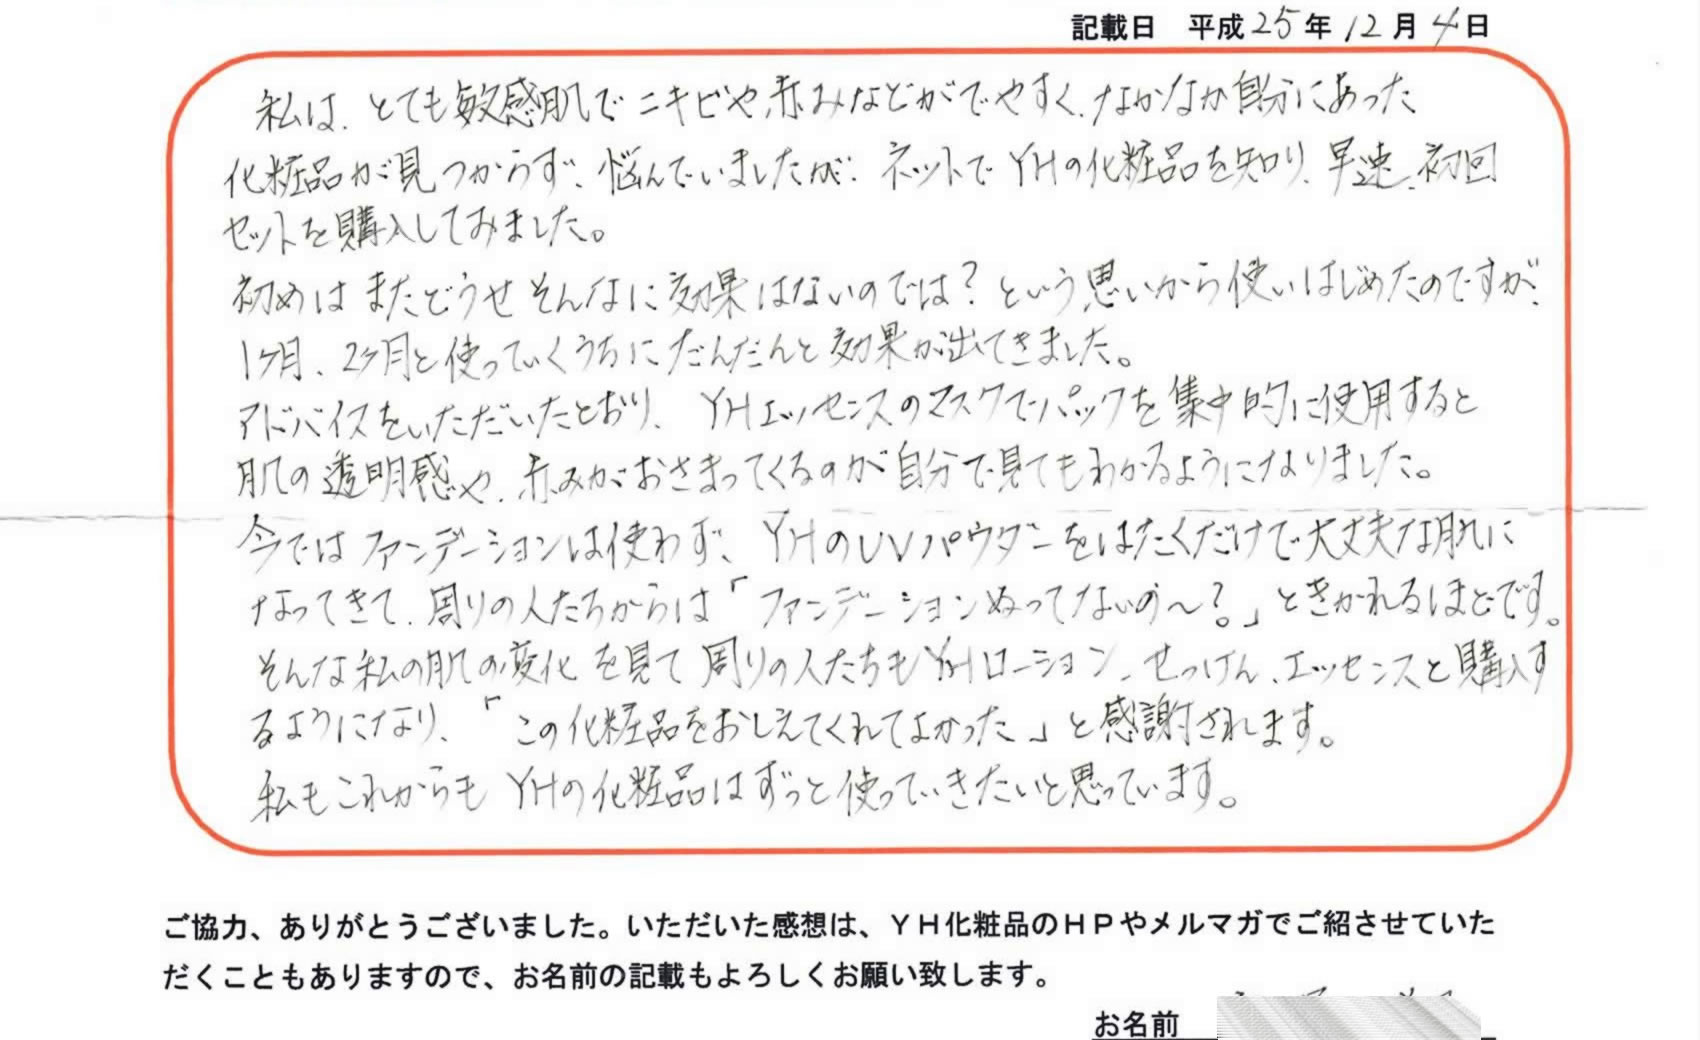 記載日 平成25年12月4日
私は、とても敏感肌でニキビや赤みなどがでやすく、なかなか自分にあった
化粧品が見つからず、悩んでいましたが、ネットでYHの化粧品を知り、早速、初回
セットを購入してみました。
初めはまたどうせそんなに効果はないのでは？という思いから使いはじめたのですが、
1ヶ月、2ヶ月と使っていくうちにだんだんと効果が出てきました。
アドバイスをいただいたとおり、YHエッセンスのマスクでパックを集中的に使用すると
肌の透明感や、赤みがおさまってくるのが自分で見てもわかるようになりました。
今ではファンデーションは使わず、YHのUVパウダーをはたくだけで大丈夫な肌に
なってきて、周りの人たちからは「ファンデーションぬってないの〜？」ときかれるほどです。
そんな私の肌の変化を見て周りの人たちもYHローション、せっけん、エッセンスと購入す
るようになり、「この化粧品をおしえてくれてよかった」と感謝されます。
私もこれからもYHの化粧品はずっと使っていきたいと思っています。
ご協力、ありがとうございました。いただいた感想は、ＹＨ化粧品のＨＰやメルマガでご紹させていた
だくこともありますので、お名前の記載もよろしくお願い致します。
お名前